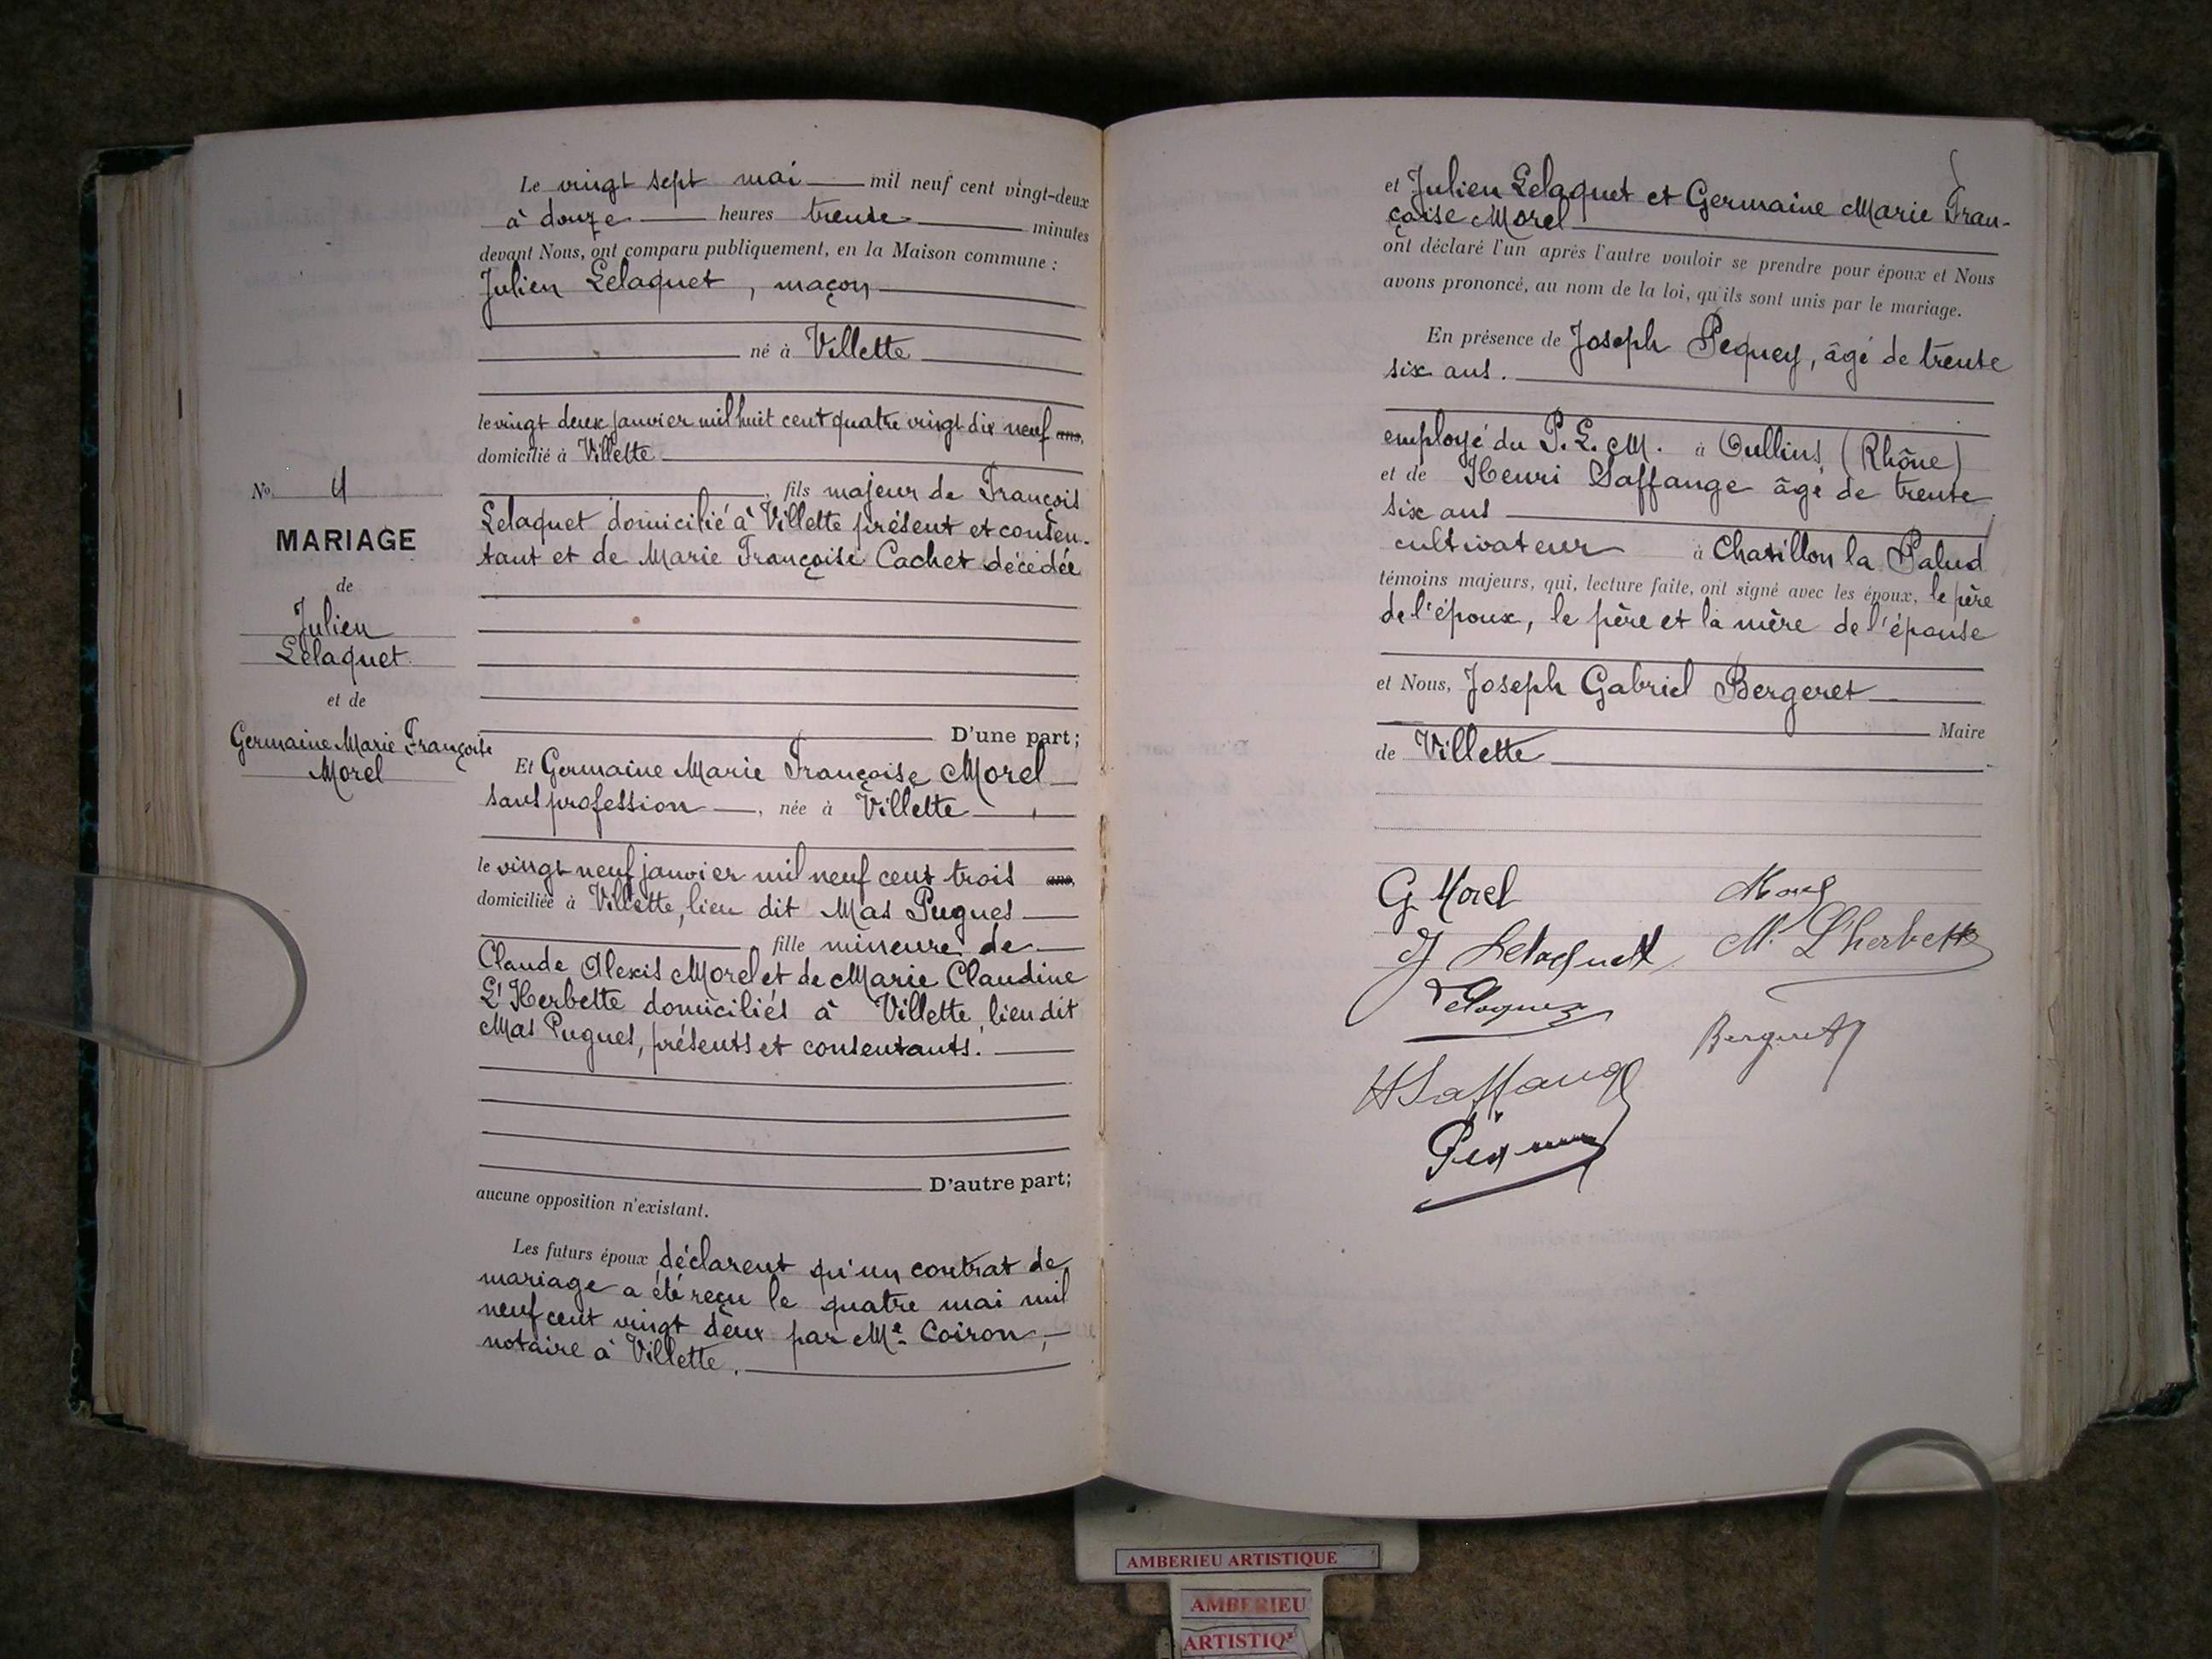 Le vingt sept mai mil neuf cent vingt-deux
à douze heures trente minutes
devant Nous, ont comparu publiquement, en la Maison commune :
Julien Lelaquet, maçon
né à Villette
le vingt deux janvier mil huit cent quatre vingt dix neuf ans,
domicilié à Villette
fils majeur de François
Lelaquet domicilié à Villette présent et consen-
tant et de Marie Françoise Cachet décédée
D'une part;
Et Germaine Marie Françoise Morel
sans profession, née à Villette
le vingt neuf janvier mil neuf cent trois ans,
domiciliée à Villette, lieu dit Mas Pugues
fille mineure de
Claude Alexis Morel et de Marie Claudine
L'Herbette domiciliés à Villette, lieu dit
Mas Pugues, présents et consentants.
D'autre part;
aucune opposition n'existant.
Les futurs époux déclarent qu'un contrat de
mariage a été reçu le quatre mai mil
neuf cent vingt deux par Me Coiron,
notaire à Villette.
No 4
MARIAGE
de
Julien
Lelaquet
et de
Germaine Marie Françoise
Morel
et Julien Lelaquet et Germaine Marie Fran-
çoise Morel
ont déclaré l'un après l'autre vouloir se prendre pour époux et Nous
avons prononcé, au nom de la loi, qu'ils sont unis par le mariage.
En présence de Joseph Pequey, âgé de trente
six ans.
employé du P. L. M. à Oullins (Rhône)
et de Henri Saffange âgé de trente
six ans
cultivateur à Chatillon la Palud
témoins majeurs, qui, lecture faite, ont signé avec les époux, le père
de l'époux, le père et la mère de l'épouse
et Nous, Joseph Gabriel Bergeret
Maire
de Villette
G Morel
Morel
J Lelaquet
M. L'herbette
Lelaquet
Bergeret
H Saffange
AMBERIEU ARTISTIQUE
AMBERIEU
ARTISTIQ